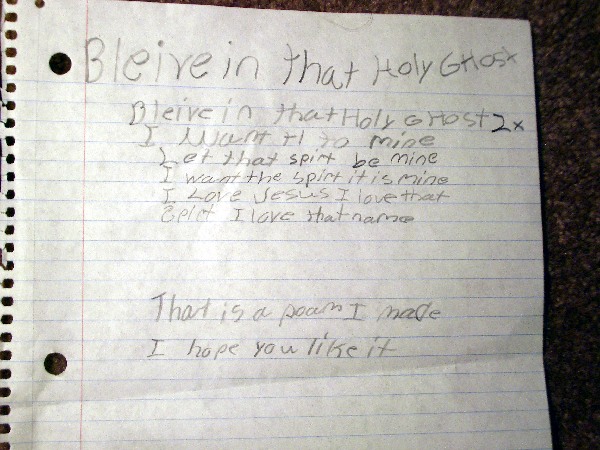 Bleive in that Holy GHost
Bleive in that Holy GHost 2x
I Want ti to mine
Let that spirt be mine
I want the spirt it is mine
I Love Jesus I love that
Spirt I love that name
That is a poam I made
I hope you like it